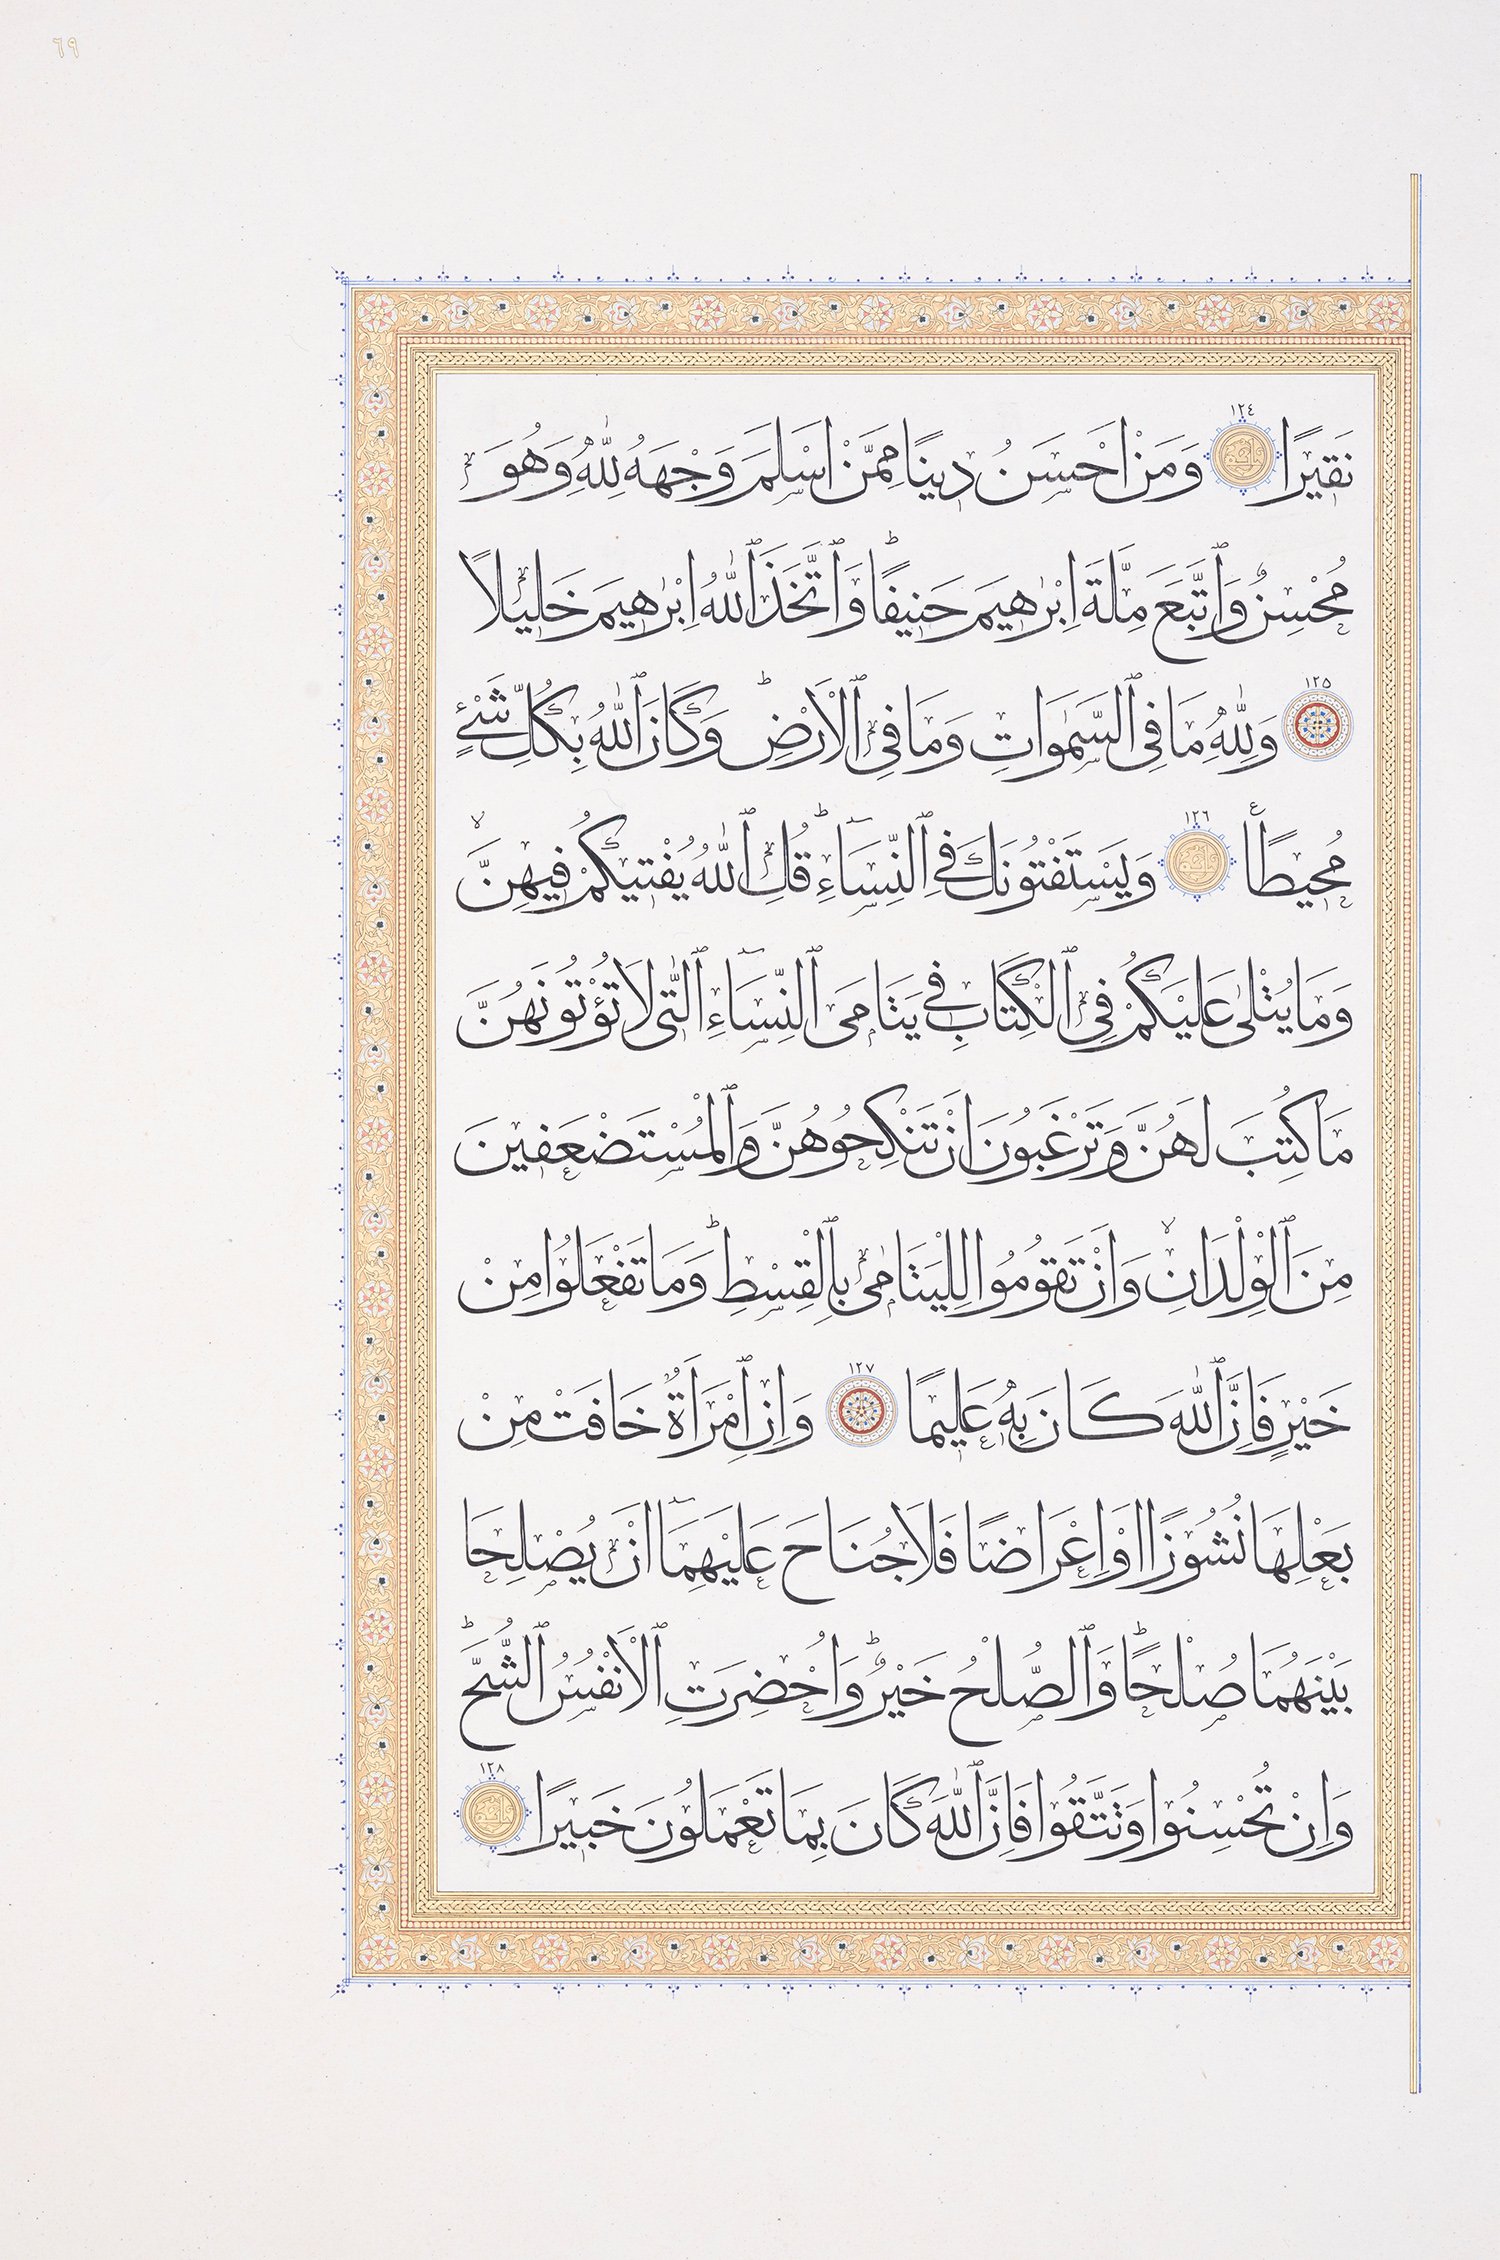 ٦٩
نَقِيرًا ١٢٤ وَمَنْ اَحْسَنُ دِينًا مِمَّنْ اَسْلَمَ وَجْهَهُ لِلّٰهِ وَهُوَ
مُحْسِنٌ وَٱتَّبَعَ مِلَّةَ اِبْرٰهِيمَ حَنِيفًا ؕ وَٱتَّخَذَ ٱللّٰهُ اِبْرٰهِيمَ خَلِيلًا
١٢٥ وَلِلّٰهِ مَا فِى ٱلسَّمٰوَاتِ وَمَا فِى ٱلْاَرْضِ ؕ وَكَانَ ٱللّٰهُ بِكُلِّ شَىْءٍ
مُحِيطًا ع ١٢٦ وَيَسْتَفْتُونَكَ فِى ٱلنِّسَٓاءِ ؕ قُلِ ٱللّٰهُ يُفْتِيكُمْ فِيهِنَّ ۙ
وَمَا يُتْلٰى عَلَيْكُمْ فِى ٱلْكِتَابِ فِى يَتَامَى ٱلنِّسَٓاءِ ٱلّٰتِى لَا تُؤْتُونَهُنَّ
مَا كُتِبَ لَهُنَّ وَتَرْغَبُونَ اَنْ تَنْكِحُوهُنَّ وَٱلْمُسْتَضْعَفِينَ
مِنَ ٱلْوِلْدَانِ ۙ وَاَنْ تَقُومُوا لِلْيَتَامٰى بِٱلْقِسْطِ ؕ وَمَا تَفْعَلُوا مِنْ
خَيْرٍ فَاِنَّ ٱللّٰهَ كَانَ بِهِ عَلِيمًا ١٢٧ وَاِنِ ٱمْرَاَةٌ خَافَتْ مِنْ
بَعْلِهَا نُشُوزًا اَوْ اِعْرَاضًا فَلَا جُنَاحَ عَلَيْهِمَٓا اَنْ يُصْلِحَا
بَيْنَهُمَا صُلْحًا ؕ وَٱلصُّلْحُ خَيْرٌ ؕ وَاُحْضِرَتِ ٱلْاَنْفُسُ ٱلشُّحَّ ؕ
وَاِنْ تُحْسِنُوا وَتَتَّقُوا فَاِنَّ ٱللّٰهَ كَانَ بِمَا تَعْمَلُونَ خَبِيرًا ١٢٨